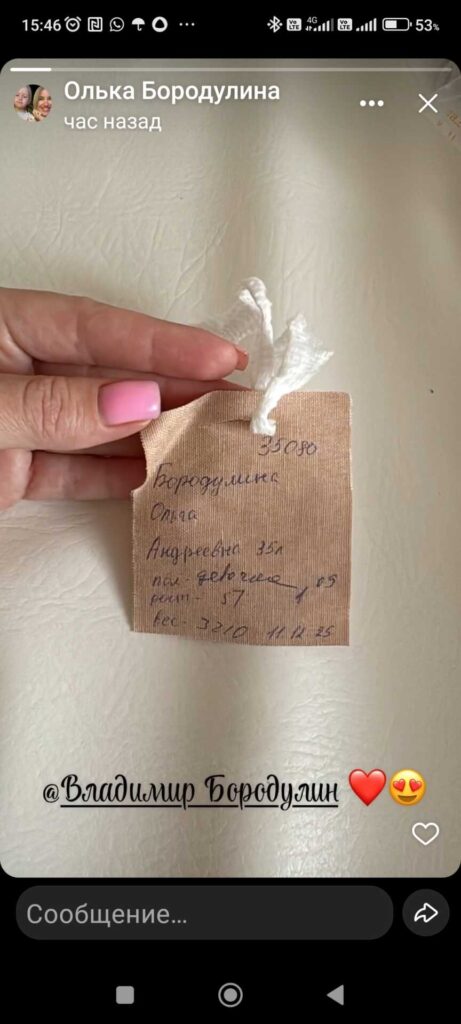 15:46 4G 53%
Олька Бородулина
час назад
35080
Бородулина
Ольга
Андреевна 35л
пол - девочка 1 09
рост - 57
вес - 3210 11.12.25
@Владимир Бородулин ❤️😍
Сообщение...